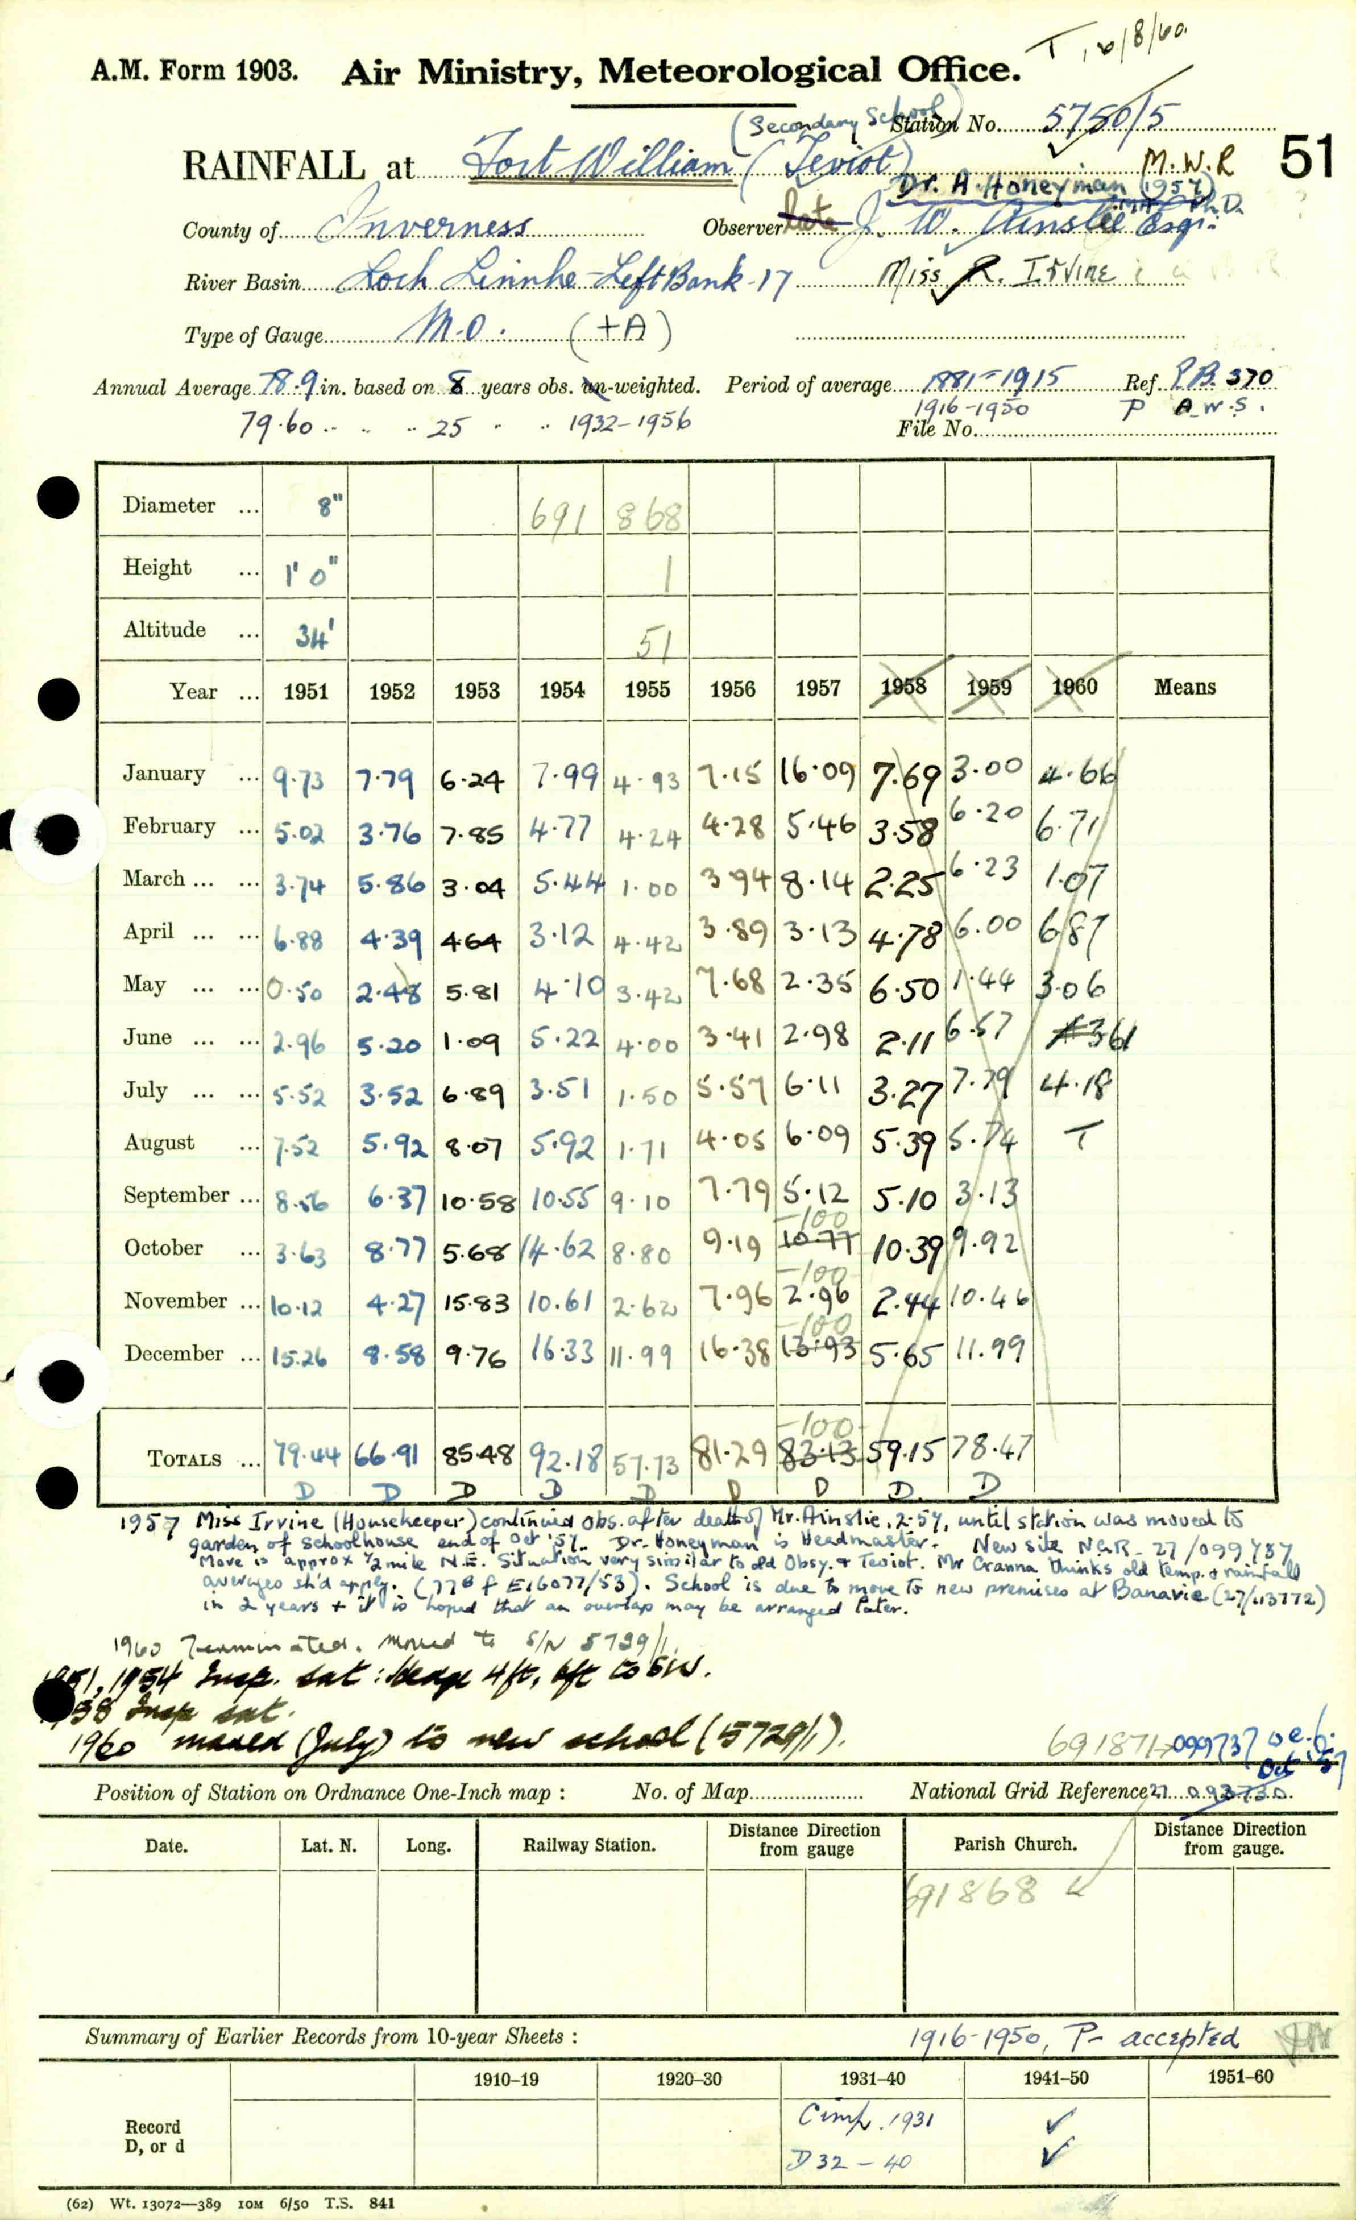 T, 6/8/60.
A.M. Form 1903. Air Ministry, Meteorological Office.
(Secondary School) Station No. 5750/5
RAINFALL at Fort William (Teviot) M.W.R 51
Dr. A. Honeyman (1957) M.A. Ph.D.
County of Inverness Observer late J. W. Ainslie Esqr.
River Basin Loch Linnhe - Left Bank - 17 Miss R. Irvine
Type of Gauge M.O. (+A)
Annual Average 78.9 in. based on 8 years obs. un-weighted. Period of average 1881-1915 Ref. P.B. 370
79.60 .. .. .. 25 .. .. 1932-1956 1916-1950 P A.W.S.
File No.
Diameter ... 8" 691 868
Height ... 1' 0" 1
Altitude ... 34' 51
Year ... 1951 1952 1953 1954 1955 1956 1957 1958 1959 1960 Means
January ... 9.73 7.79 6.24 7.99 4.93 7.15 16.09 7.69 3.00 4.66
February ... 5.02 3.76 7.85 4.77 4.24 4.28 5.46 3.58 6.20 6.71
March ... ... 3.74 5.86 3.04 5.44 1.00 3.94 8.14 2.25 6.23 1.07
April ... ... 6.88 4.39 4.64 3.12 4.42 3.89 3.13 4.78 6.00 6.87
May ... ... 0.50 2.48 5.81 4.10 3.42 7.68 2.35 6.50 1.44 3.06
June ... ... 2.96 5.20 1.09 5.22 4.00 3.41 2.98 2.11 6.57 3.61
July ... ... 5.52 3.52 6.89 3.51 1.50 5.57 6.11 3.27 7.79 4.18
August ... 7.52 5.92 8.07 5.92 1.71 4.05 6.09 5.39 5.74 T
September ... 8.56 6.37 10.58 10.55 9.10 7.79 5.12 5.10 3.13
-100
October ... 3.63 8.77 5.68 14.62 8.80 9.19 10.77 10.39 9.92
-100
November ... 10.12 4.27 15.83 10.61 2.62 7.96 2.96 2.44 10.46
-100
December ... 15.26 8.58 9.76 16.33 11.99 16.38 13.93 5.65 11.99
-100
TOTALS ... 79.44 66.91 85.48 92.18 57.73 81.29 83.13 59.15 78.47
D D D D D D D D. D
1957 Miss Irvine (Housekeeper) continued obs. after death of Mr. Ainslie, 2.57, until station was moved to
garden of schoolhouse end of Oct '57. Dr. Honeyman is Headmaster. New site N.G.R. 27/099737
Move is approx 1/2 mile N.E. Situation very similar to old Obsy. & Teviot. Mr Cranna thinks old temp. & rainfall
averages sh'd apply. (77B f E16077/53). School is due to move to new premises at Banavie (27/113772)
in 2 years + it is hoped that an overlap may be arranged later.
1960 Terminated. Moved to S/N 5729/1.
1951, 1954 Insp. sat: Hedge 4ft, 6ft to SW.
1958 Insp sat.
1960 moved (July) to new school (5729/1).
691871 099737 w.e.f. Oct '57
Position of Station on Ordnance One-Inch map : No. of Map National Grid Reference 27 093730
Date. Lat. N. Long. Railway Station. Distance from gauge Direction Parish Church. Distance from gauge. Direction
691868
Summary of Earlier Records from 10-year Sheets : 1916-1950, P- accepted
1910-19 1920-30 1931-40 1941-50 1951-60
Record Comp. 1931 ✓
D, or d D 32 - 40 ✓
(62) Wt. 13072—389 10M 6/50 T.S. 841